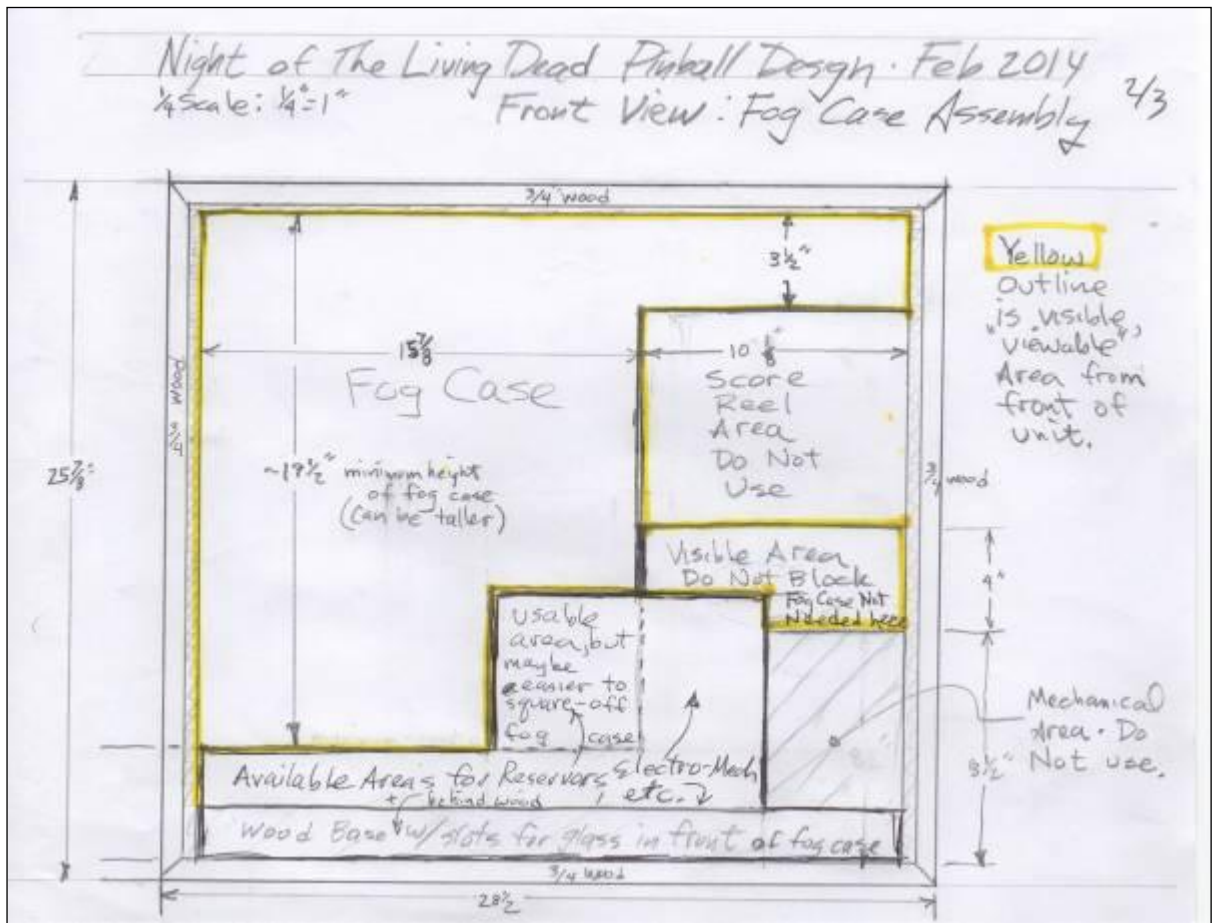 Night of The Living Dead Pinball Design. Feb 2014
1/4 Scale: 1/4"=1"
Front View: Fog Case Assembly
2/3
3/4" wood
3 1/2"
Yellow
Outline
is visible,
"viewable"
Area from
front of
unit.
15 7/8"
Fog Case
Score
Reel
Area
Do Not
Use
3/4 wood
25 7/8"
minimum height
of fog case
(can be taller)
3/4 wood
Visible Area
Do Not Block
Fog Case Not
Needed here
4"
usable
area, but
maybe
easier to
square-off
fog case
Mechanical
Area. Do
Not use.
Available Areas for Reservoirs, Electro-Mech
etc.
+ behind wood
Wood Base w/slots for glass in front of fog case
3/4 wood
28 1/2